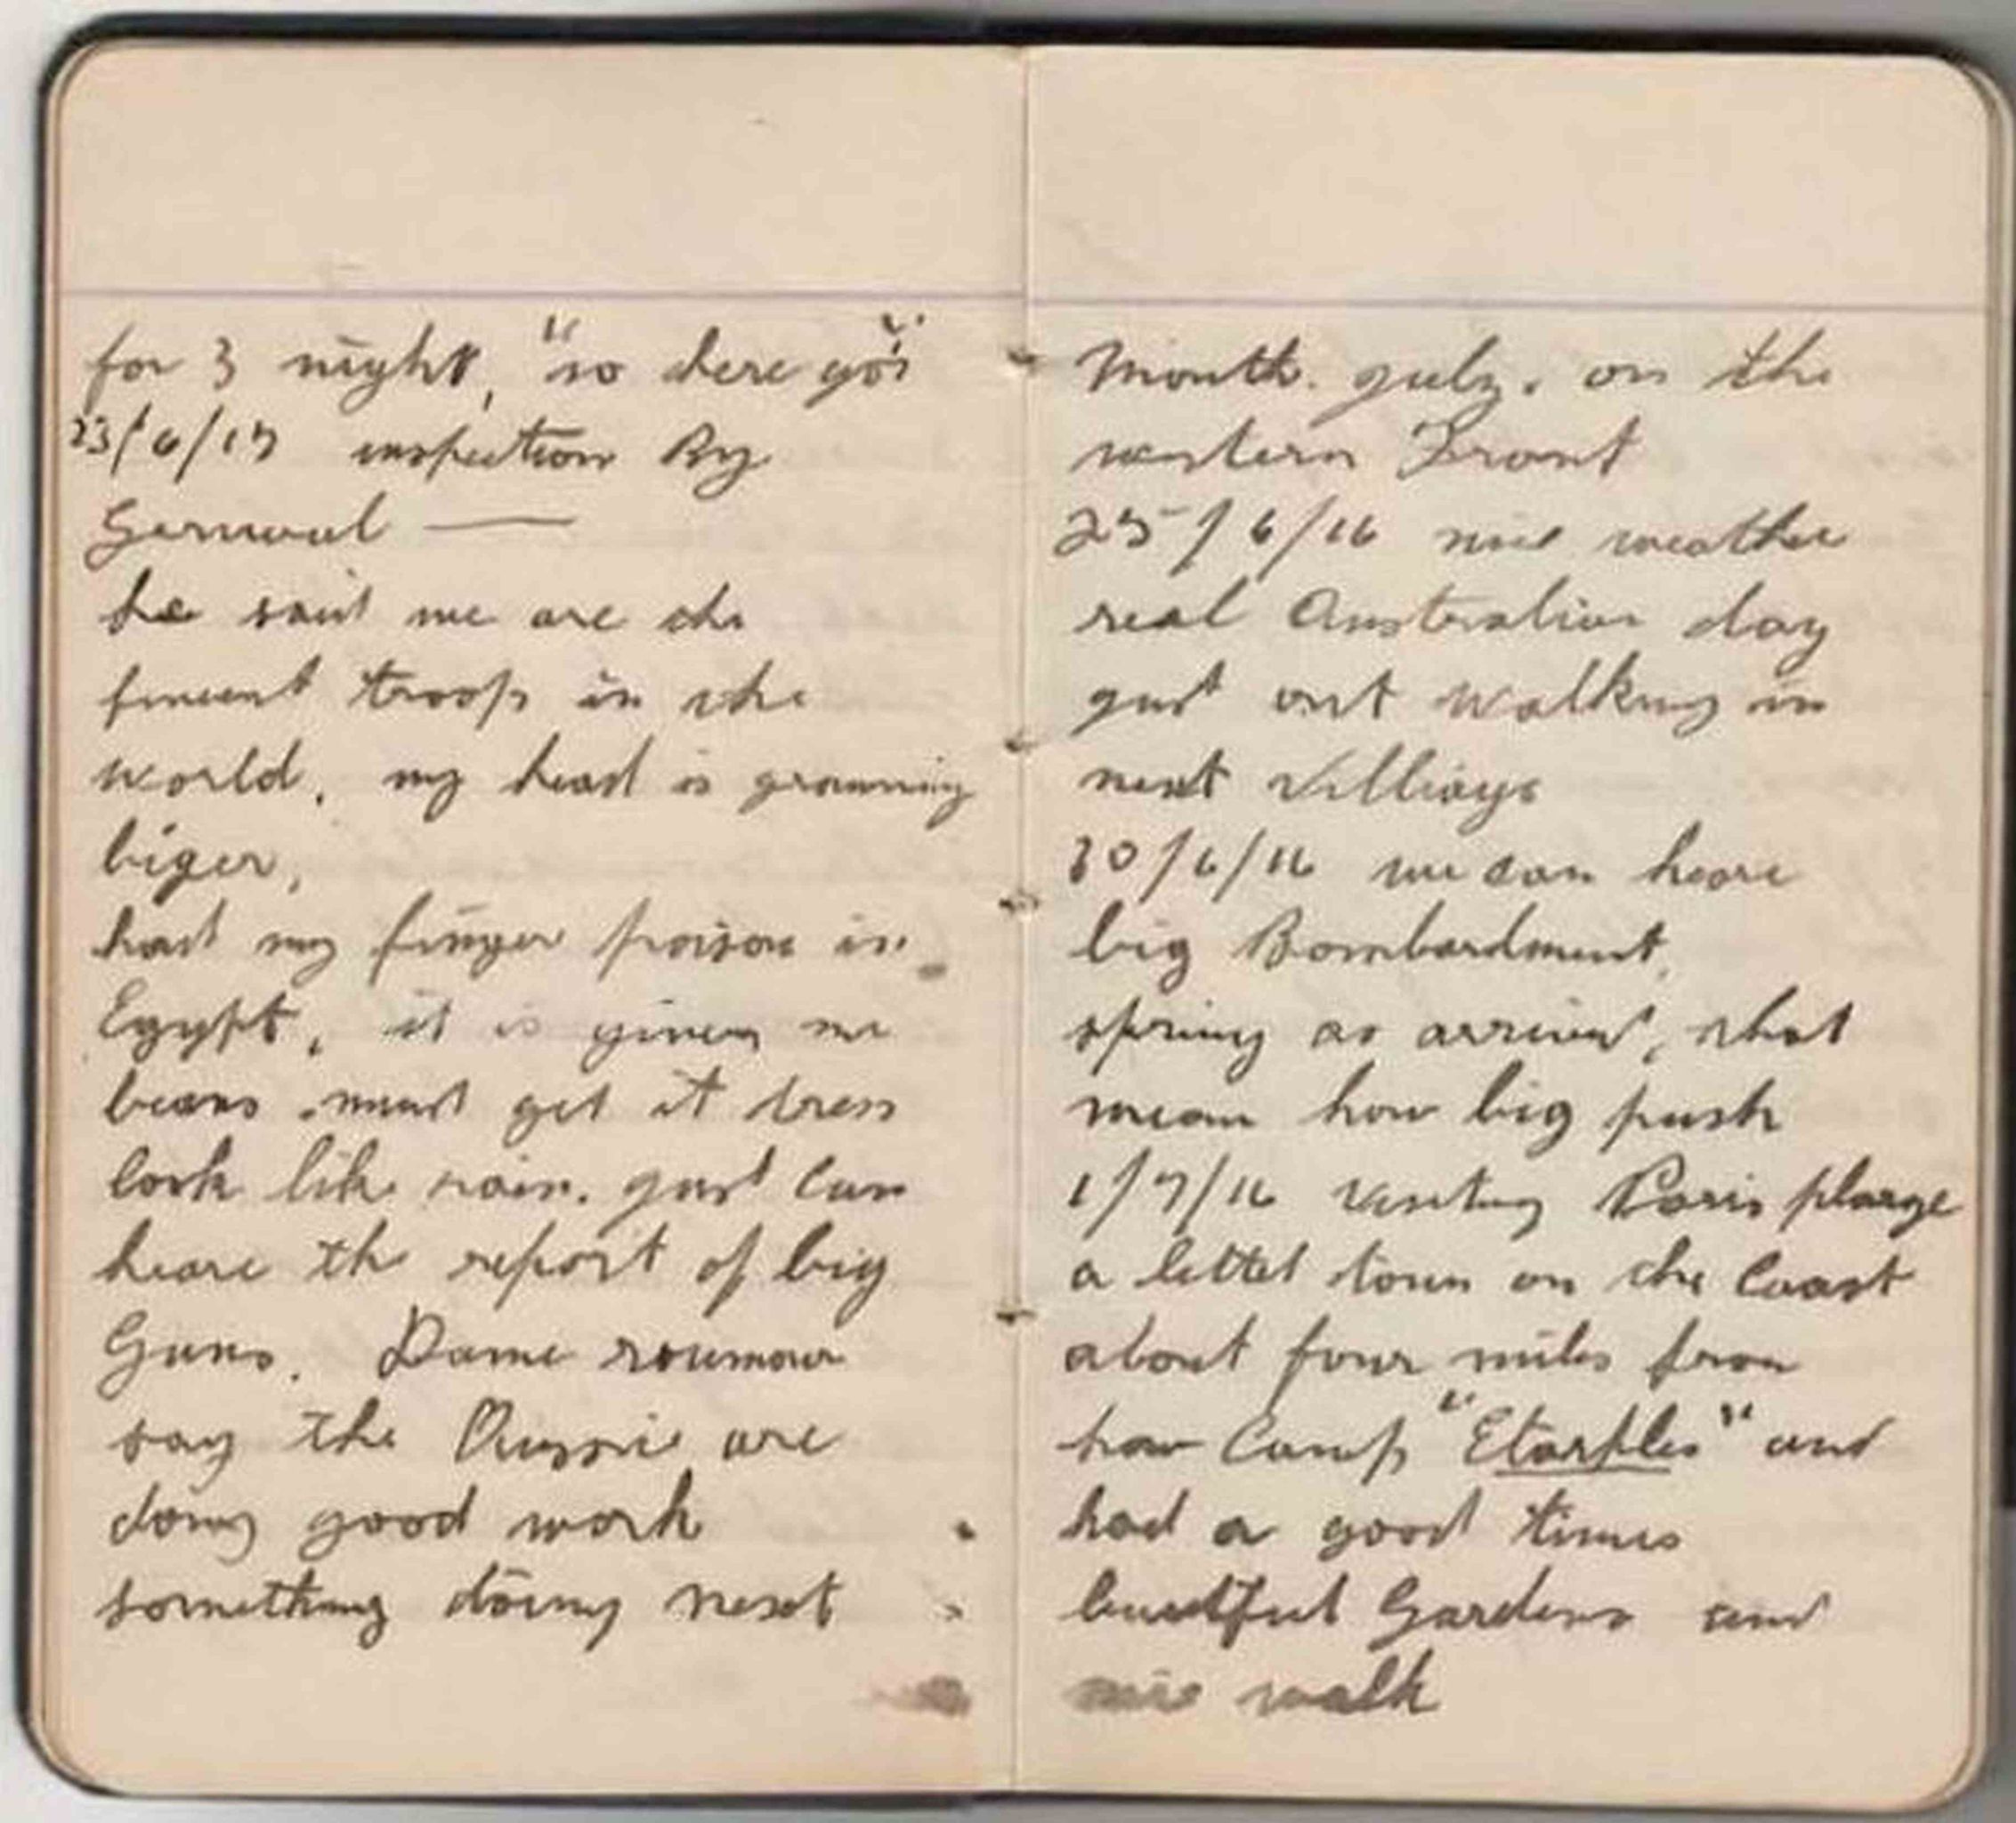 for 3 night, "so there go's"
23/6/17 inspection By
Gerneral —
he said we are the
finecent troop in the
world. my head is grawning
biger,
had my finger poison in
Egypt, it is giveng me
beans. must get it dress
look like rain. just can
heare the report of big
Guns. Dame roumour
say the Aussie are
doing good work
something doing next
Month. july. on the
western Front
25/6/16 nice weather
real Australian day
just out walking in
next Villiage
30/6/16 we can heare
big Bombardment,
spring as arrived, that
mean how big push
1/7/16 visiting Paris plarge
a littel town on the Coast
about four miles from
how Camp "Etarples" and
had a good times
beautiful Gardens and
nice walk